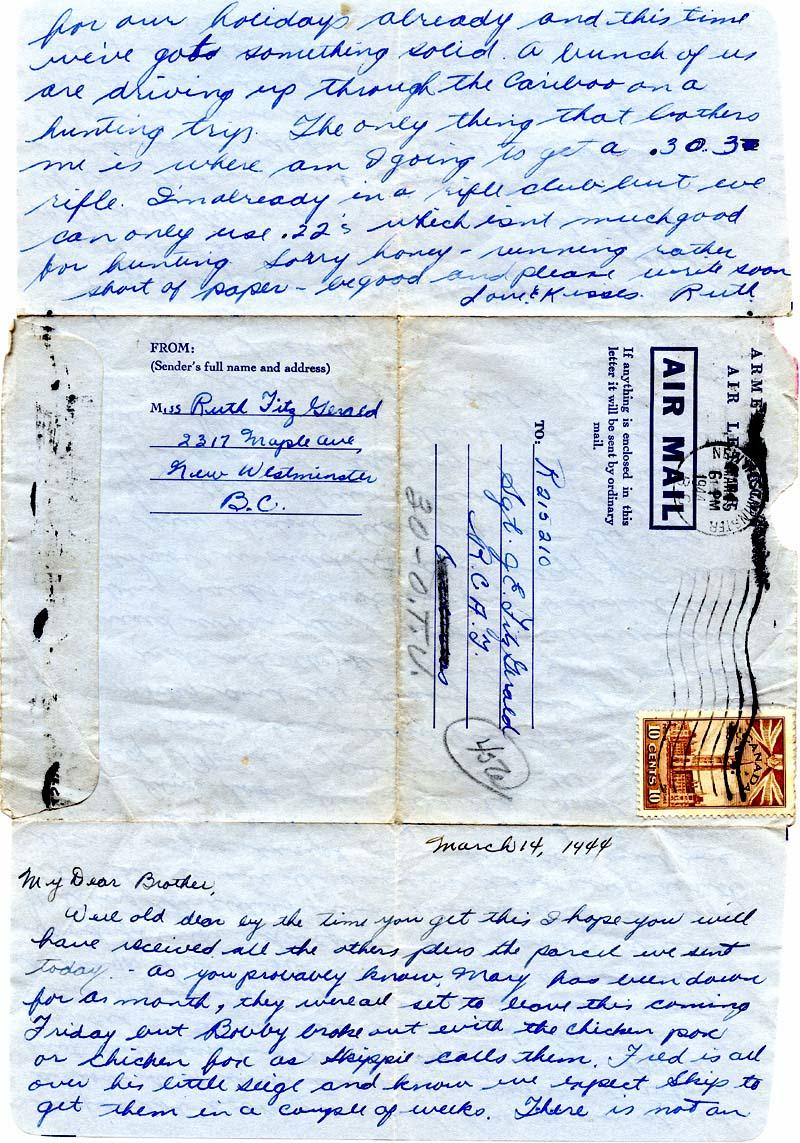 for our holidays already and this time
we've gots something solid. A bunch of us
are driving up through the Cariboo on a
hunting trip. The only thing that bothers
me is where am I going to get a .30.30
rifle. I'm already in a rifle club but we
can only use .22's which isnt much good
for hunting. Sorry honey - running rather
short of paper - be good and please write soon
Love & Kisses. Ruth
FROM:
(Sender's full name and address)
Miss Ruth Fitz Gerald
2317 Maple ave,
New Westminster
B.C.
AIR
AIR MAIL
If anything is enclosed in this
letter it will be sent by ordinary
mail.
TO: R215210
Sgt. J E. Fitz Gerald
R.C.A.F.
30-O.T.U.
6 PM
1944
CANADA
10 CENTS 10
March 14, 1944
My Dear Brother,
Well old dear by the time you get this I hope you will
have received all the others plus the parcel we sent
today. - as you provavly know, Mary has been down
for as month, they were all set to leave this coming
Friday but Bovby broke out with the chicken pox
or chicken fox as Skippie calls them. Fred is all
over his little seige and know we expect Skip to
get them in a couple of weeks. There is not an